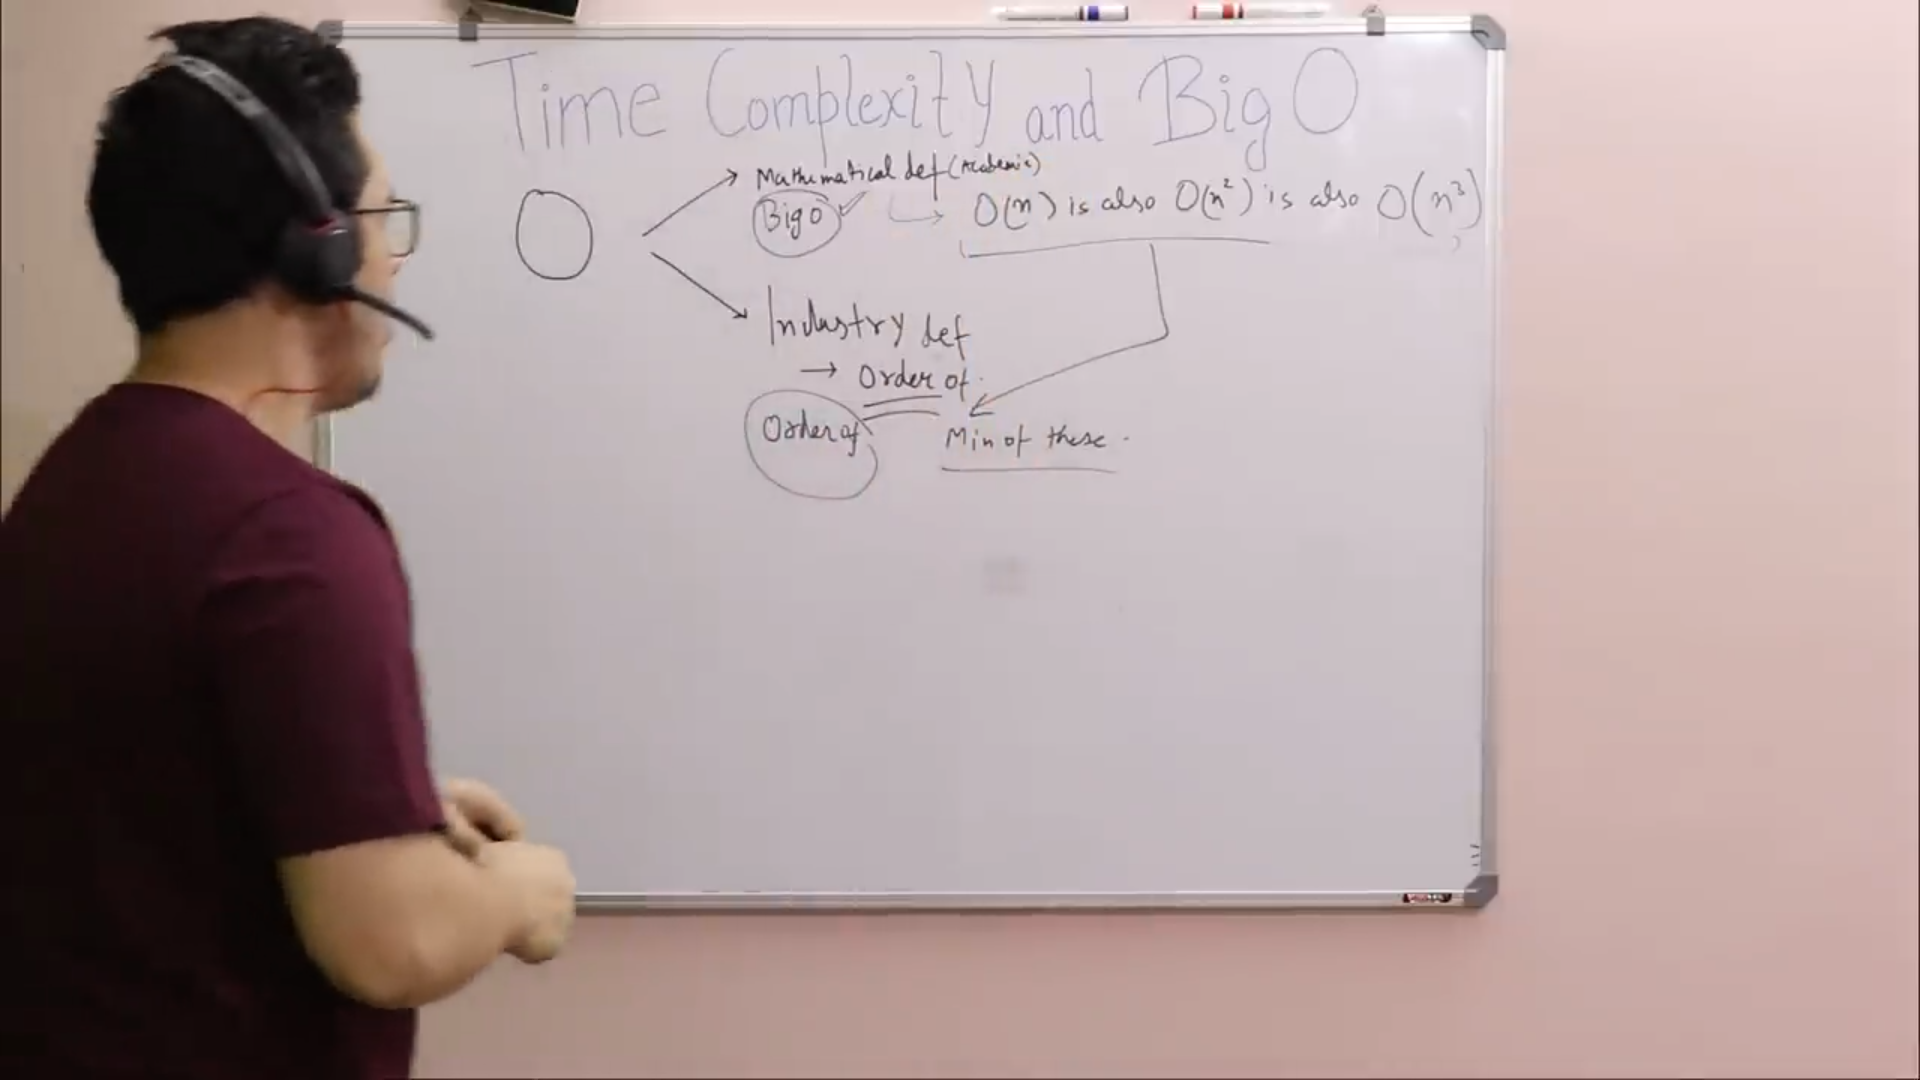 Time Complexity and Big O
O
Mathematical def (Academic)
Big O
O(n) is also O(n²) is also O(n³)
Industry def
→ Order of
Order of
Min of these